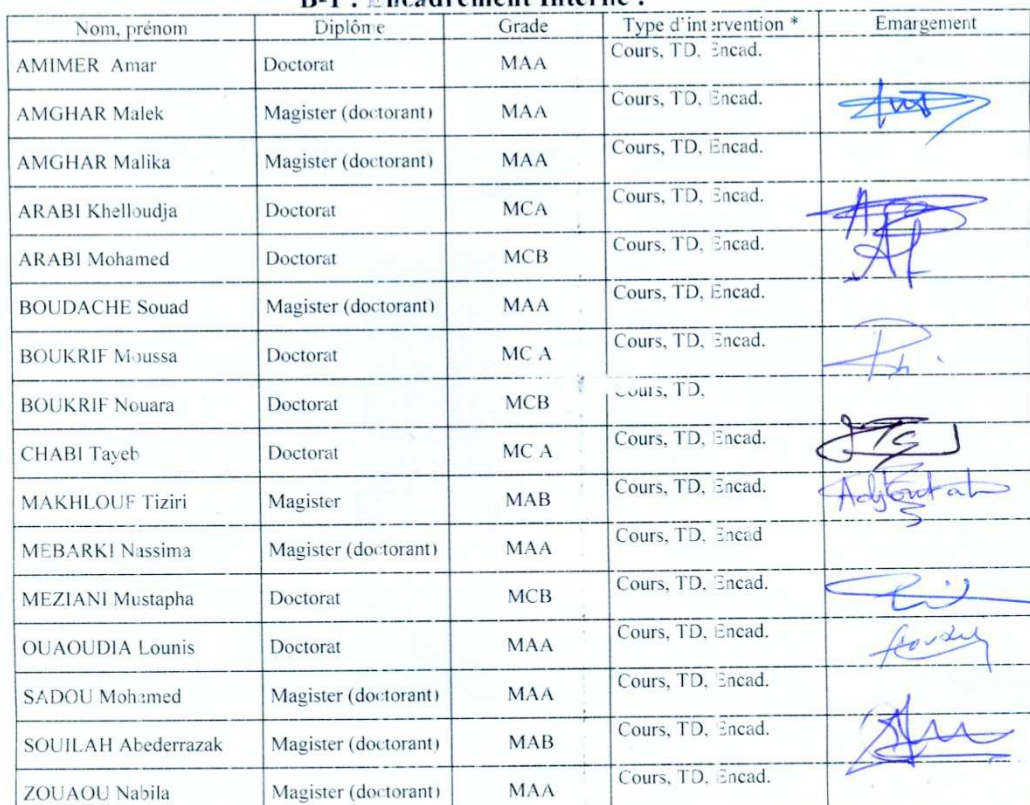 B-1 : Encadrement Interne :
Nom, prénom Diplôme Grade Type d'intervention * Emargement
AMIMER Amar Doctorat MAA Cours, TD, Encad.
AMGHAR Malek Magister (doctorant) MAA Cours, TD, Encad.
AMGHAR Malika Magister (doctorant) MAA Cours, TD, Encad.
ARABI Khelloudja Doctorat MCA Cours, TD, Encad.
ARABI Mohamed Doctorat MCB Cours, TD, Encad.
BOUDACHE Souad Magister (doctorant) MAA Cours, TD, Encad.
BOUKRIF Moussa Doctorat MC A Cours, TD, Encad.
BOUKRIF Nouara Doctorat MCB Cours, TD,
CHABI Tayeb Doctorat MC A Cours, TD, Encad.
MAKHLOUF Tiziri Magister MAB Cours, TD, Encad. Adjoutah
MEBARKI Nassima Magister (doctorant) MAA Cours, TD, Encad
MEZIANI Mustapha Doctorat MCB Cours, TD, Encad.
OUAOUDIA Lounis Doctorat MAA Cours, TD, Encad.
SADOU Mohamed Magister (doctorant) MAA Cours, TD, Encad.
SOUILAH Abederrazak Magister (doctorant) MAB Cours, TD, Encad.
ZOUAOU Nabila Magister (doctorant) MAA Cours, TD, Encad.